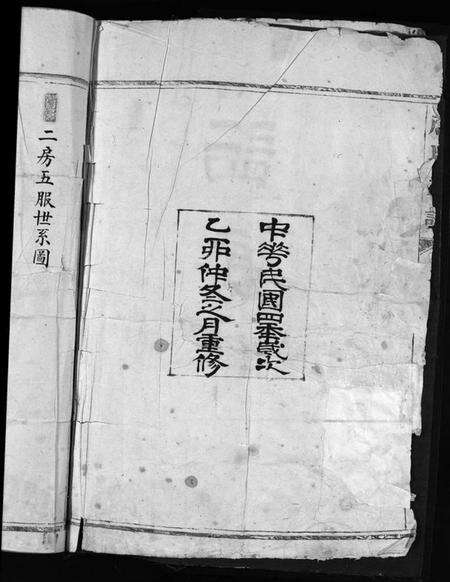 中華民國四季歲次
乙卯仲冬之月重修
二房五服世系圖